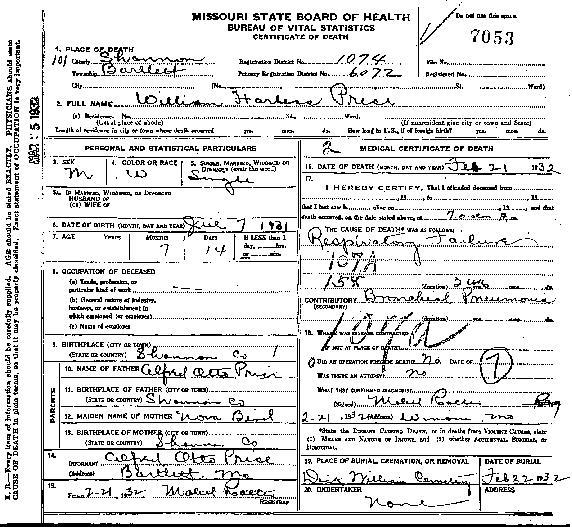 MISSOURI STATE BOARD OF HEALTH
BUREAU OF VITAL STATISTICS
CERTIFICATE OF DEATH
Do not use this space.
7053
1. PLACE OF DEATH
County Shannon Registration District No. 1074 File No.
Township Bartlett Primary Registration District No. 6072 Registered No.
City No. St. Ward)
2. FULL NAME William Price
(a) Residence. No. St. Ward.
(Usual place of abode) (If nonresident give city or town and State)
Length of residence in city or town where death occurred yrs. mos. ds. How long in U.S., if of foreign birth? yrs. mos. ds.
PERSONAL AND STATISTICAL PARTICULARS
3. SEX M
4. COLOR OR RACE W
5. SINGLE, MARRIED, WIDOWED OR DIVORCED (write the word) Single
5A. IF MARRIED, WIDOWED, OR DIVORCED
HUSBAND OF
(OR) WIFE OF
6. DATE OF BIRTH (MONTH, DAY AND YEAR) 7 1931
7. AGE YEARS MONTHS 7 DAYS 14 If LESS than 1 day, hrs. or min.
8. OCCUPATION OF DECEASED
(a) Trade, profession, or
particular kind of work
(b) General nature of industry,
business, or establishment in
which employed (or employer)
(c) Name of employer
9. BIRTHPLACE (CITY OR TOWN)
(STATE OR COUNTRY) Shannon Co
PARENTS
10. NAME OF FATHER Alfred Otto Price
11. BIRTHPLACE OF FATHER (CITY OR TOWN)
(STATE OR COUNTRY) Shannon Co
12. MAIDEN NAME OF MOTHER Nora
13. BIRTHPLACE OF MOTHER (CITY OR TOWN)
(STATE OR COUNTRY) Shannon Co
14.
INFORMANT Alfred Otto Price
(Address) Bartlett Mo
15.
FILED 2-21, 1932 Mabel
REGISTRAR
2 MEDICAL CERTIFICATE OF DEATH
16. DATE OF DEATH (MONTH, DAY AND YEAR) Feb 21 1932
17.
I HEREBY CERTIFY, That I attended deceased from
, 19 , to , 19
that I last saw h alive on , 19 , and that
death occurred, on the date stated above, at 7 m.
THE CAUSE OF DEATH* WAS AS FOLLOWS:
Respiratory Failure
107A
158
(duration) yrs. mos. ds.
CONTRIBUTORY Bronchial Pneumonia
(SECONDARY)
(duration) yrs. mos. ds.
107a
18. WHERE WAS DISEASE CONTRACTED
IF NOT AT PLACE OF DEATH?
DID AN OPERATION PRECEDE DEATH? No DATE OF
WAS THERE AN AUTOPSY? no
7
WHAT TEST CONFIRMED DIAGNOSIS?
(Signed) Mabel Reg
2-21, 1932 (Address) Winona Mo
*State the DISEASE CAUSING DEATH, or in deaths from VIOLENT CAUSES, state
(1) MEANS AND NATURE OF INJURY, and (2) whether ACCIDENTAL, SUICIDAL, or
HOMICIDAL.
19. PLACE OF BURIAL, CREMATION, OR REMOVAL
William Cemetery
DATE OF BURIAL
Feb 22 1932
20. UNDERTAKER
None
ADDRESS
N. B.—Every item of information should be carefully supplied. AGE should be stated EXACTLY. PHYSICIANS should state
CAUSE OF DEATH in plain terms, so that it may be properly classified. Exact statement of OCCUPATION is very important.